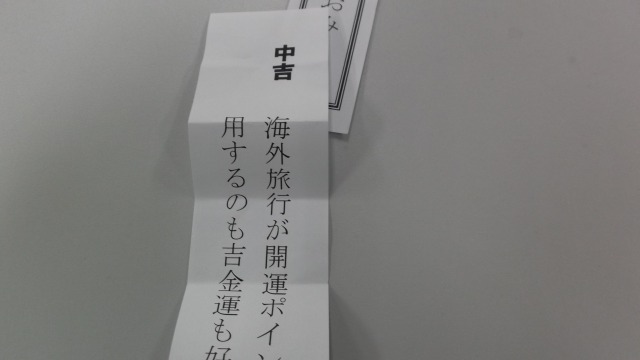 おみ
中吉
海外旅行が開運ポイン
用するのも吉金運も好